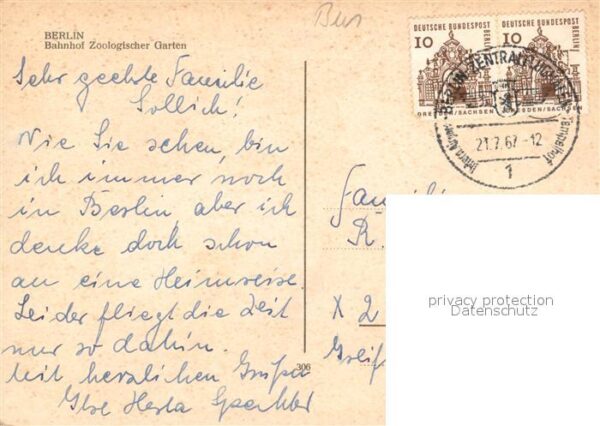 BERLIN
Bahnhof Zoologischer Garten
Sehr geehrte Familie
Sollich!
Wie Sie sehen, bin
ich immer noch
in Berlin aber ich
denke doch schon
an eine Heimreise.
Leider fliegt die Zeit
nur so dahin.
Mit herzlichen Grüßen
Ilse Herta
306
DEUTSCHE BUNDESPOST
BERLIN
10
DRESDEN/SACHSEN
DEUTSCHE BUNDESPOST
BERLIN
10
DRESDEN/SACHSEN
BERLIN ZENTRALFLUGHAFEN
Tempelhof
21.7.67-12
1
Famili
R.
X 2
Greif
privacy protection
Datenschutz